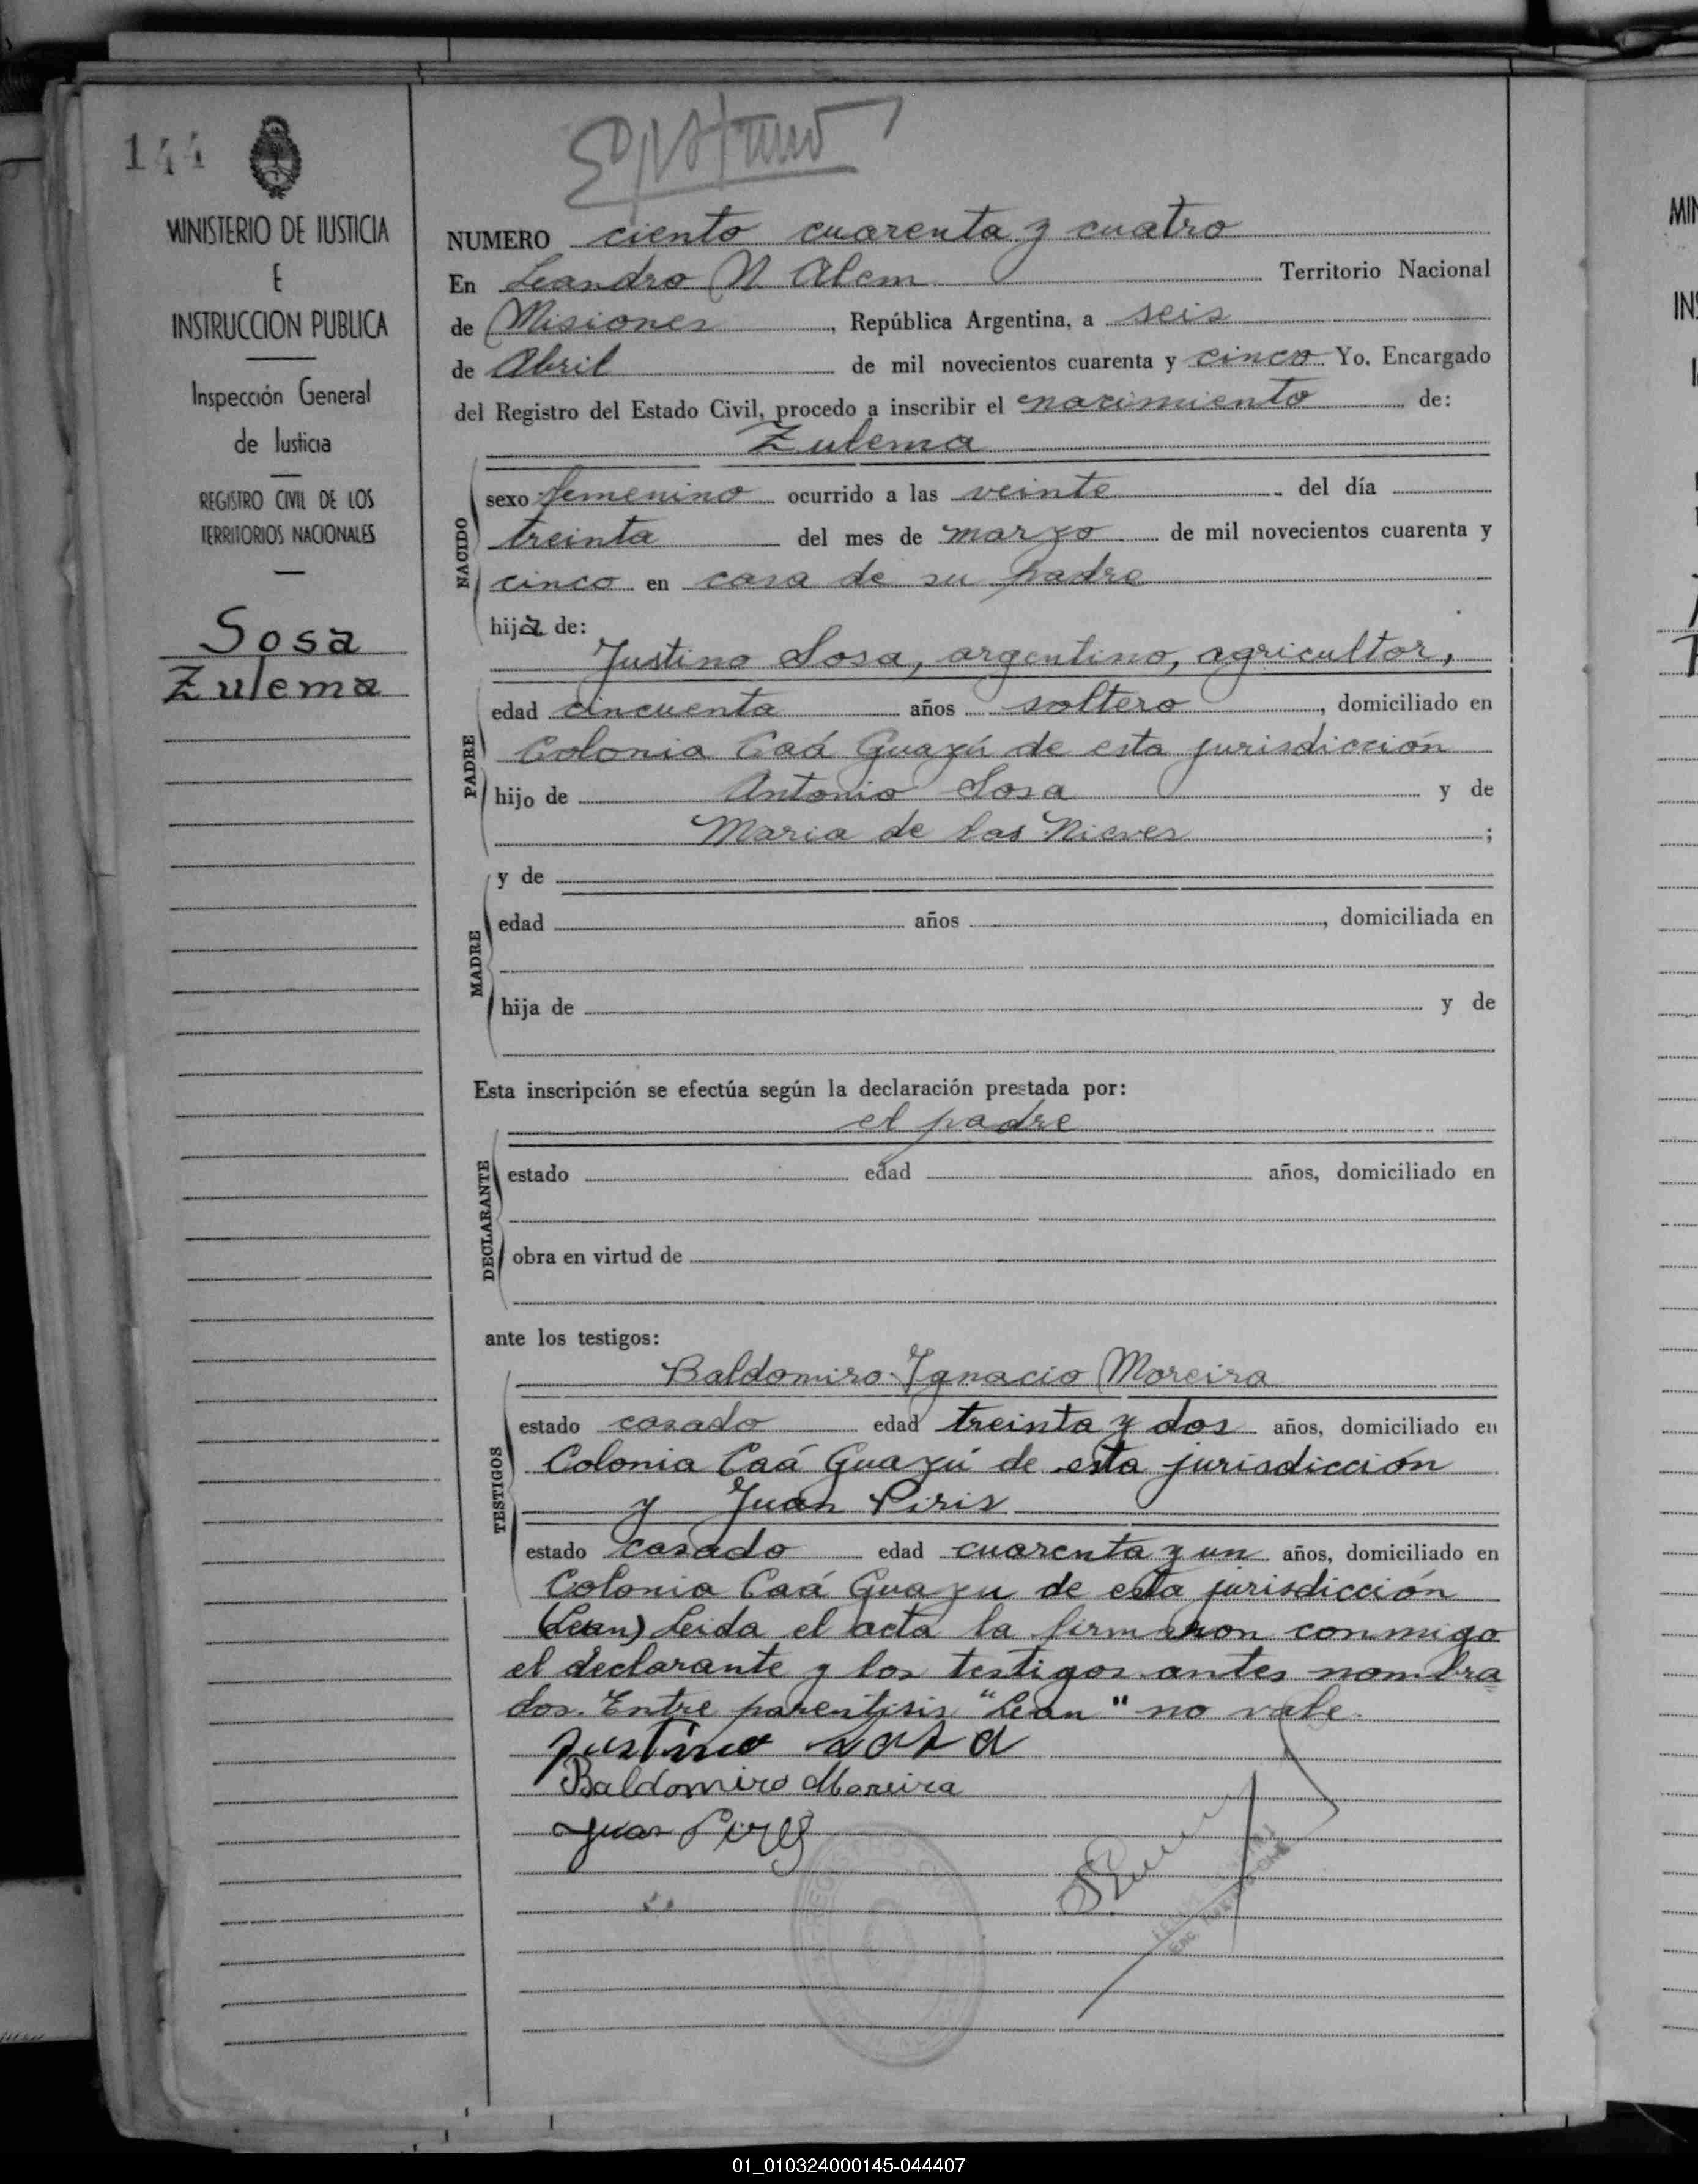 144
MINISTERIO DE JUSTICIA
E
INSTRUCCION PUBLICA
Inspección General
de Justicia
REGISTRO CIVIL DE LOS
TERRITORIOS NACIONALES
Sosa
Zulema
NUMERO ciento cuarenta y cuatro
En Leandro N Alem Territorio Nacional
de Misiones, República Argentina, a seis
de Abril de mil novecientos cuarenta y cinco Yo, Encargado
del Registro del Estado Civil, procedo a inscribir el nacimiento de:
Zulema
NACIDO
sexo femenino ocurrido a las veinte del día
treinta del mes de marzo de mil novecientos cuarenta y
cinco en casa de su padre
hija de:
Justino Sosa, argentino, agricultor,
PADRE
edad cincuenta años soltero, domiciliado en
Colonia Caá Guazú de esta jurisdicción
hijo de Antonio Sosa y de
Maria de las Nieves;
MADRE
y de
edad años, domiciliada en
hija de y de
Esta inscripción se efectúa según la declaración prestada por:
el padre
DECLARANTE
estado edad años, domiciliado en
obra en virtud de
ante los testigos:
Baldomiro Ignacio Moreira
TESTIGOS
estado casado edad treinta y dos años, domiciliado en
Colonia Caá Guazú de esta jurisdicción
y Juan Piris
estado casado edad cuarenta y un años, domiciliado en
Colonia Caá Guazu de esta jurisdicción
(Lean) Leida el acta la firmaron conmigo
el declarante y los testigos antes nombra
dos. Entre parentisis "Lean" no vale.
Justino sosa
Baldomiro Moreira
Juan
01_010324000145-044407